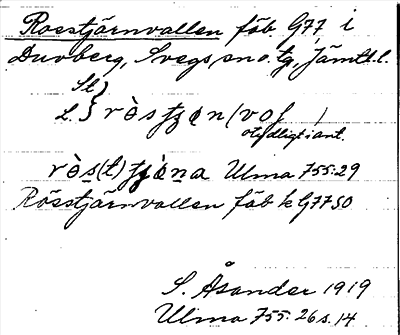 Rosstjärnvallen fäb. G77 i
Duvberg, Svegs sn o. tg, Jämtl. l.
St }
L. } rö̀stʒɛn(vol )
otydligt i ant.
rö̀s(t)tʒɛ̀na Ulma 755:29
Rösstjärnvallen fäb k G7750
S. Åsander 1919
Ulma 755:26 s. 14